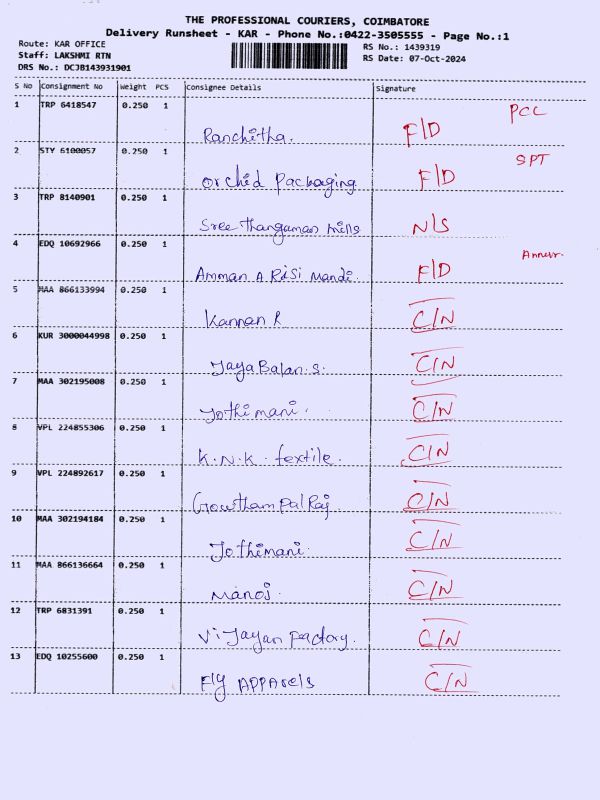 THE PROFESSIONAL COURIERS, COIMBATORE
Delivery Runsheet - KAR - Phone No.:0422-3505555 - Page No.:1
Route: KAR OFFICE RS No.: 1439319
Staff: LAKSHMI RTN RS Date: 07-Oct-2024
DRS No.: DCJB143931901
S No Consignment No Weight PCS Consignee Details Signature
1 TRP 6418547 0.250 1 PCC
Ranchitha. F/D
2 STY 6100057 0.250 1 SPT
Orchid Packaging F/D
3 TRP 8140901 0.250 1
Sree Thangaman Mills N/S
4 EDQ 10692966 0.250 1
Amman A Risi Mandi. F/D
5 MAA 866133994 0.250 1
Kannan R C/N
6 KUR 3000044998 0.250 1
Jaya Balan. S. C/N
7 MAA 302195008 0.250 1
Jothimani. C/N
8 VPL 224855306 0.250 1
K.N.K. textile. C/N
9 VPL 224892617 0.250 1
Gowtham Pal Raj C/N
10 MAA 302194184 0.250 1
Jothimani. C/N
11 MAA 866136664 0.250 1
Manoj. C/N
12 TRP 6831391 0.250 1
Vijayan Factory. C/N
13 EDQ 10255600 0.250 1
Fly APParels C/N